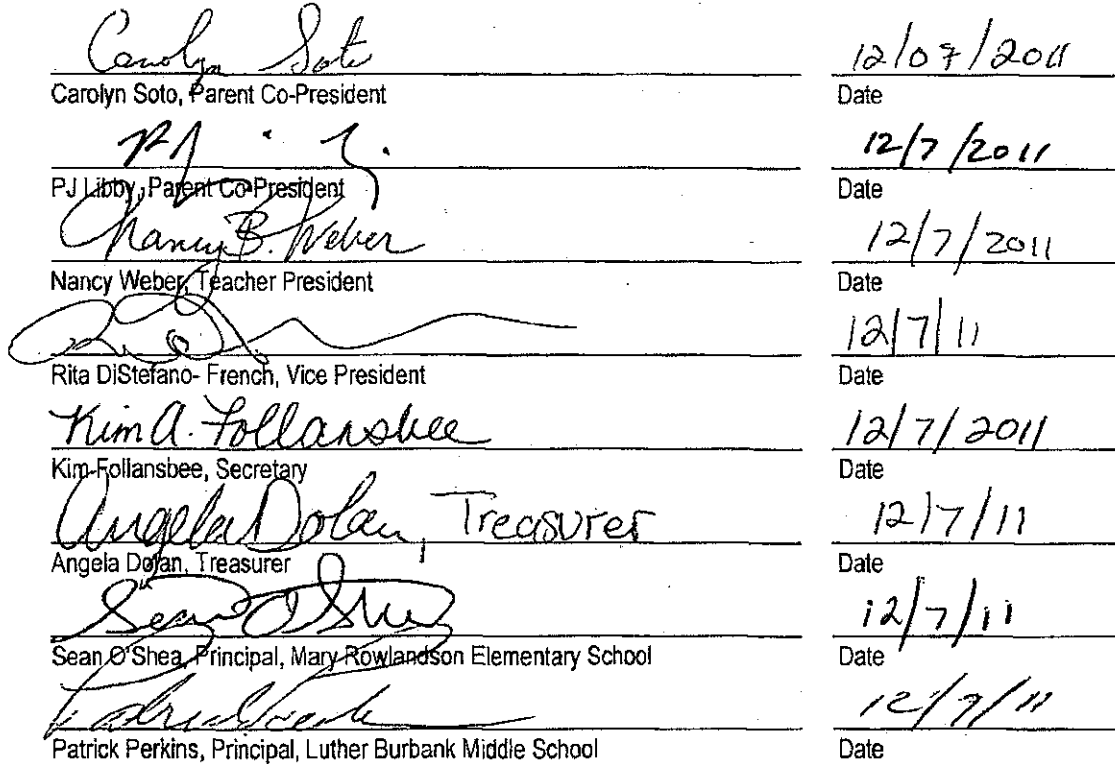 Carolyn Soto 12/07/2011
Carolyn Soto, Parent Co-President Date
12/7/2011
PJ Libby, Parent Co-President Date
Nancy B. Weber 12/7/2011
Nancy Weber, Teacher President Date
12/7/11
Rita DiStefano- French, Vice President Date
Kim A. Follansbee 12/7/2011
Kim Follansbee, Secretary Date
Angela Dolan, Treasurer 12/7/11
Angela Dolan, Treasurer Date
Sean O'Shea 12/7/11
Sean O'Shea, Principal, Mary Rowlandson Elementary School Date
Patrick Perkins, Principal, Luther Burbank Middle School Date